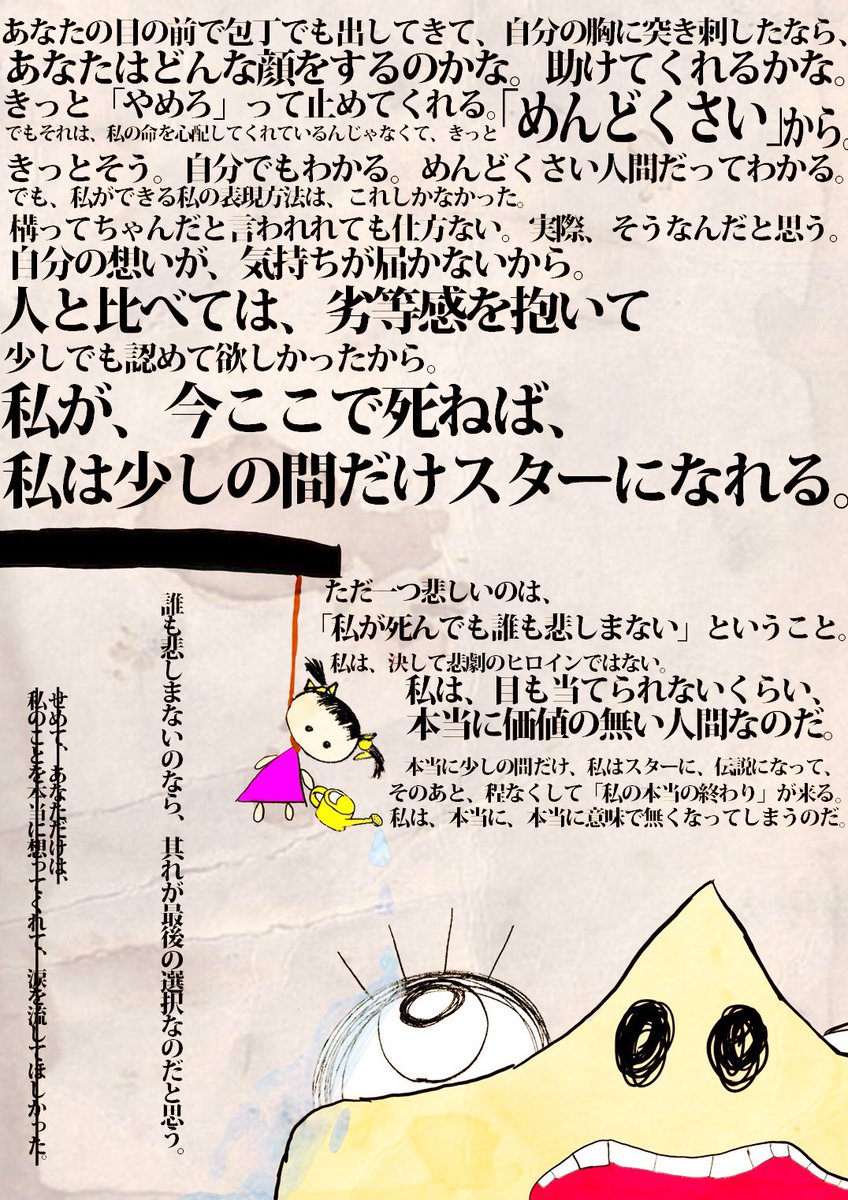 あなたの目の前で包丁でも出してきて、自分の胸に突き刺したなら、
あなたはどんな顔をするのかな。助けてくれるかな。
きっと「やめろ」って止めてくれる。
でもそれは、私の命を心配してくれているんじゃなくて、きっと「めんどくさい」から。
きっとそう。自分でもわかる。めんどくさい人間だってわかる。
でも、私ができる私の表現方法は、これしかなかった。
構ってちゃんだと言われれても仕方ない。実際、そうなんだと思う。
自分の想いが、気持ちが届かないから。
人と比べては、劣等感を抱いて
少しでも認めて欲しかったから。
私が、今ここで死ねば、
私は少しの間だけスターになれる。
ただ一つ悲しいのは、
「私が死んでも誰も悲しまない」ということ。
私は、決して悲劇のヒロインではない。
私は、目も当てられないくらい、
本当に価値の無い人間なのだ。
本当に少しの間だけ、私はスターに、伝説になって、
そのあと、程なくして「私の本当の終わり」が来る。
私は、本当に、本当に意味で無くなってしまうのだ。
誰も悲しまないのなら、其れが最後の選択なのだと思う。
せめて、あなただけは、
私のことを本当に想ってくれて、涙を流してほしかった。